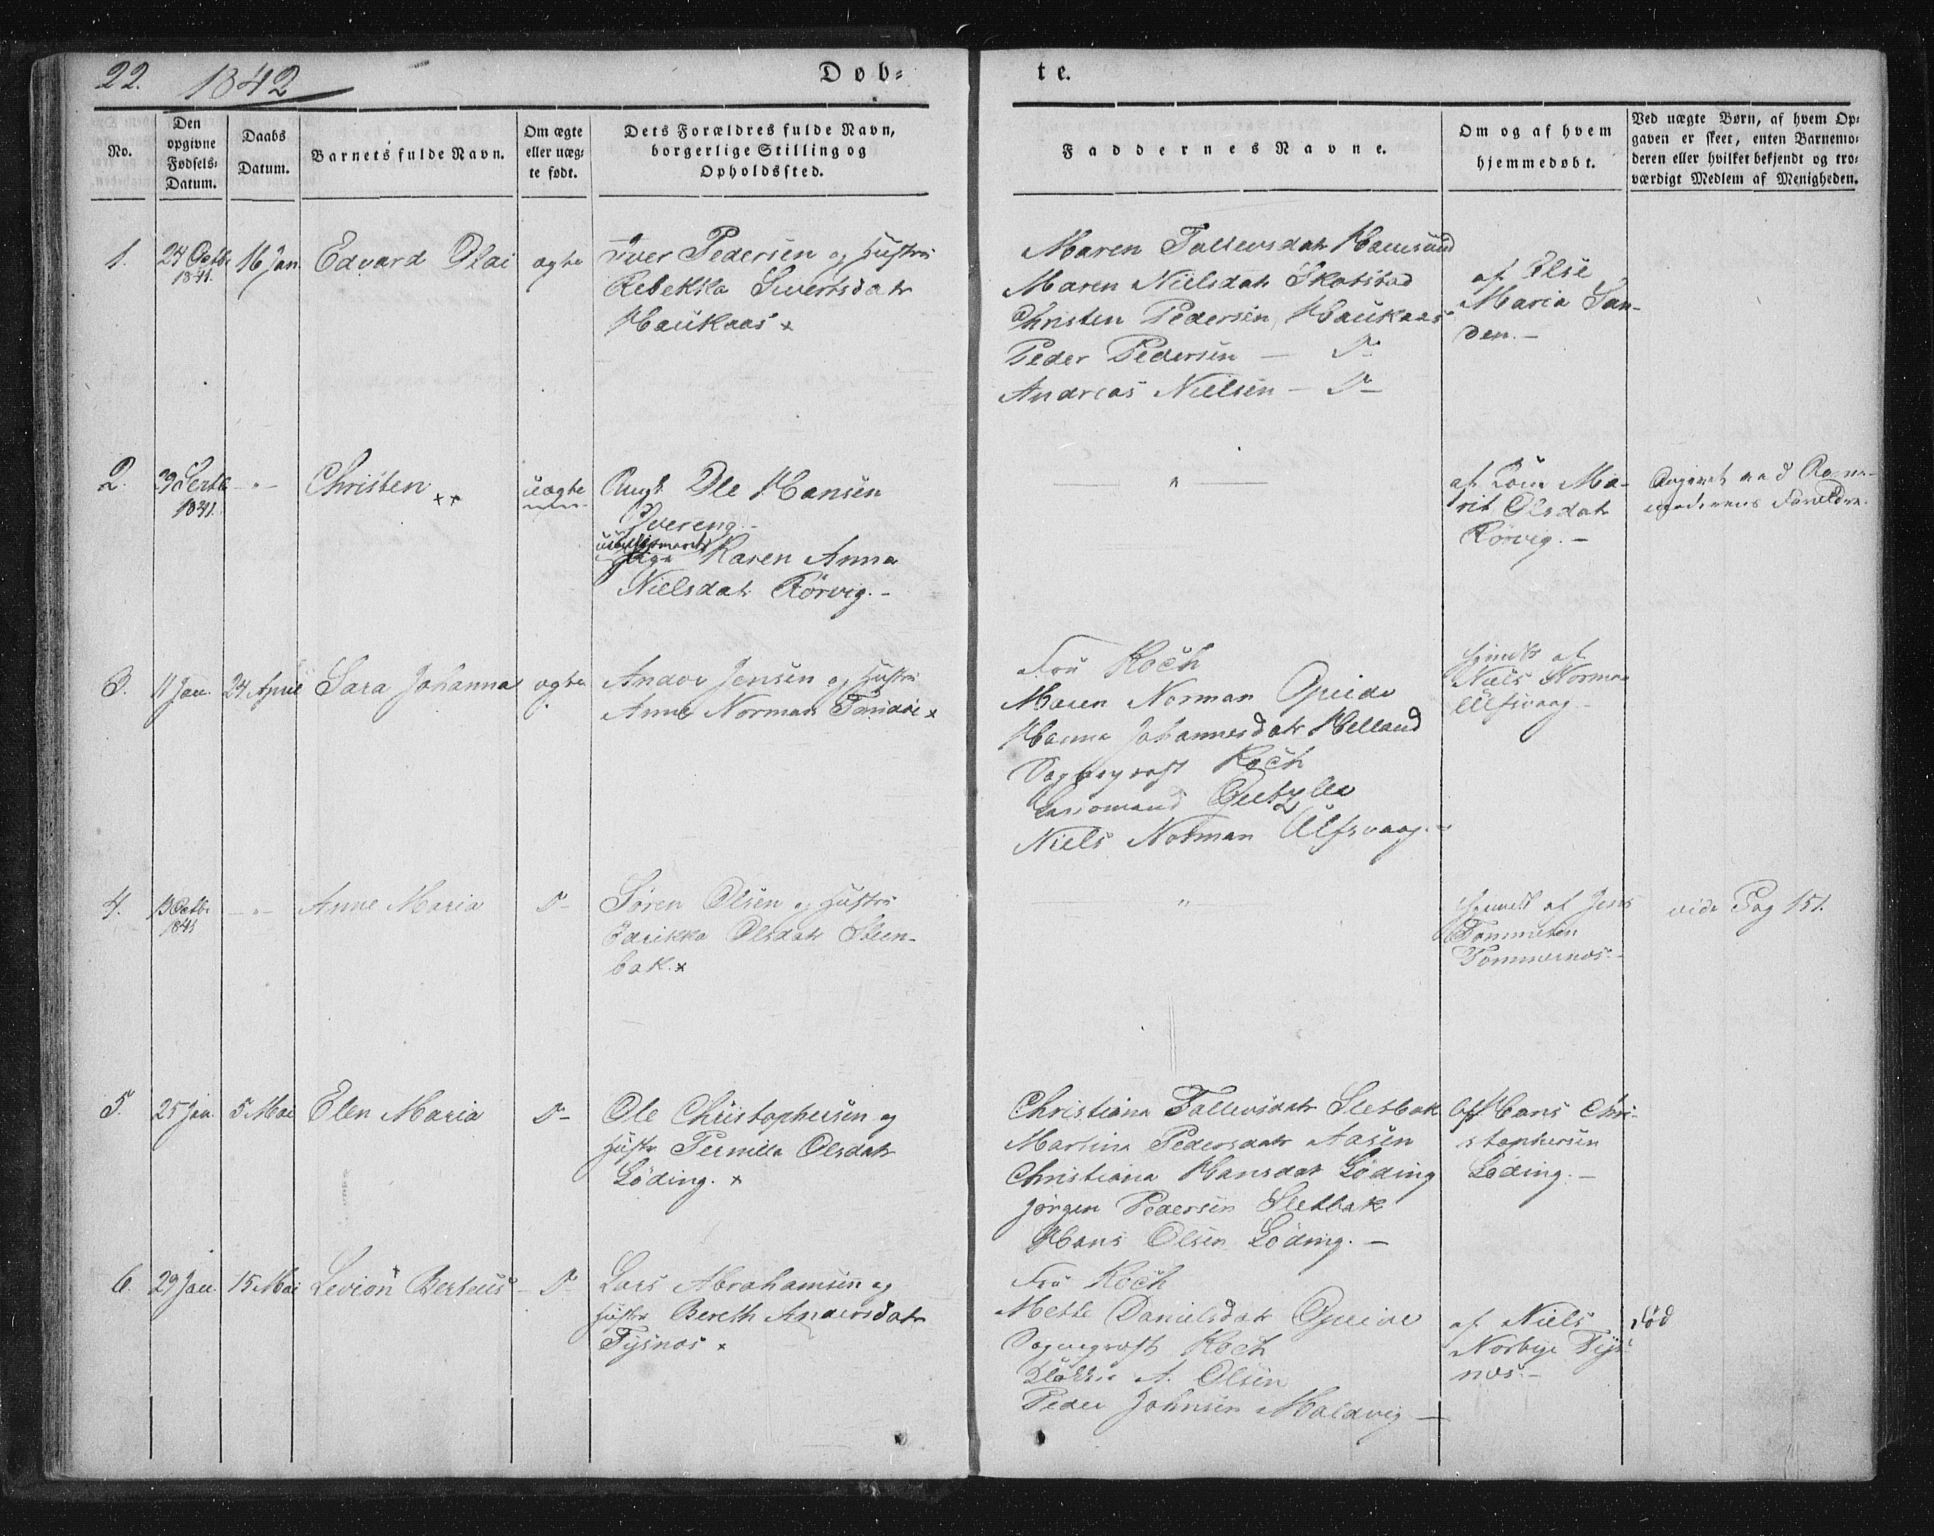 22. 1842
Døb-
te.
No.
Den opgivne Fødsels-Datum.
Daabs Datum.
Barnets fulde Navn.
Om ægte eller uæg-te født.
Dets Forældres fulde Navn, borgerlige Stilling og Opholdssted.
Faddernes Navne.
Om og af hvem hjemmedøbt.
Ved uægte Børn, af hvem Op-gaven er skeet, enten Barnemo-deren eller hvilket bekjendt og tro-værdigt Medlem af Menigheden.
1.
24 Octb.
1841.
16 Jan
Edvard Olai
ægte
Iver Pedersen og Hustru
Rebekka Sivertsdatr
Haukaas x
Maren Tollevsdatr Hamsund
Maren Nielsdatr Skotstad
Christen Pedersen Haukaas
Peder Pedersen — D
Andreas Nielsen — D
af Else
Maria San-
den. -
2.
Septb
1841.
- " -
Christen xx
uægte
Ungk Ole Hansen
Pige Karen Anna
Nielsdatr Rörvig. -
"
af Ma-
rit Olsdatr
Rörvig. -
Angivet ved Barne-
moderens Forældre.
3.
11 Jan.
24 April
Sara Johanna
ægte
Andor Jensen og Hustru
Anne Norman x
Fru Koch
Maren Norman Opeide
Hanna Johannesdatr Helland
Sogneprest Koch
Niels Norman Ulfsvaag. -
hjemdt af
Niels Norman
Ulfsvaag -
4.
13 Octb.
1841
- " -
Anne Maria
D -
Sören Olsen og Hustru
Olsdatr Steen-
bak. x
"
hjemdt af Jens
Tömmernes. -
vide Pag 151.
5.
25 Jan.
5 Mai
Elen Maria
D -
Ole Christophersen og
Hustr Pernilla Olsdatr
Löding. x
Christiana Tollevsdatr Sletbak
Martina Pedersdatr Aasen
Christiana Hansdat Löding
Jörgen Pedersen Sletbak
Hans Olsen Löding. —
af Hans Chri-
stophersen
Löding. —
6.
29 Jan
15 Mai
Levion Berteus
D
Lars Abrahamsen og
Hustru Bereth Andersdatr
Tysnes x
Fru Koch
Mette Danielsdatr Opeide
Sogneprest Koch
A. Olsen
Peder Johnsen Maldvig —
af Niels
Norbye Tys
nes. -
död